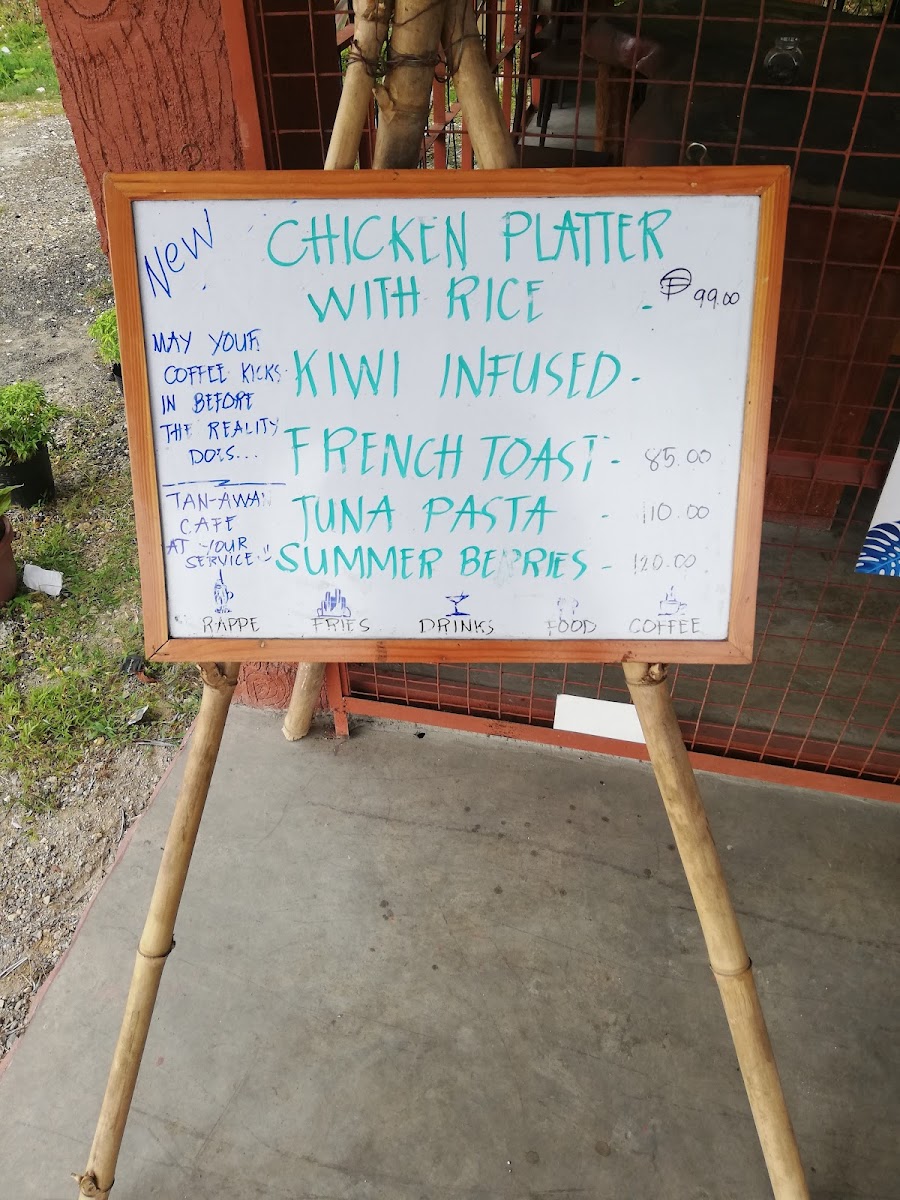 New
CHICKEN PLATTER
WITH RICE - ₱99.00
KIWI INFUSED -
FRENCH TOAST - 85.00
TUNA PASTA - 110.00
SUMMER BERRIES - 120.00
MAY YOUR
COFFEE KICKS
IN BEFORE
THE REALITY
DOES...
TAN-AWAN
CAFE
AT YOUR
SERVICE!!
RAPPE
FRIES
DRINKS
FOOD
COFFEE